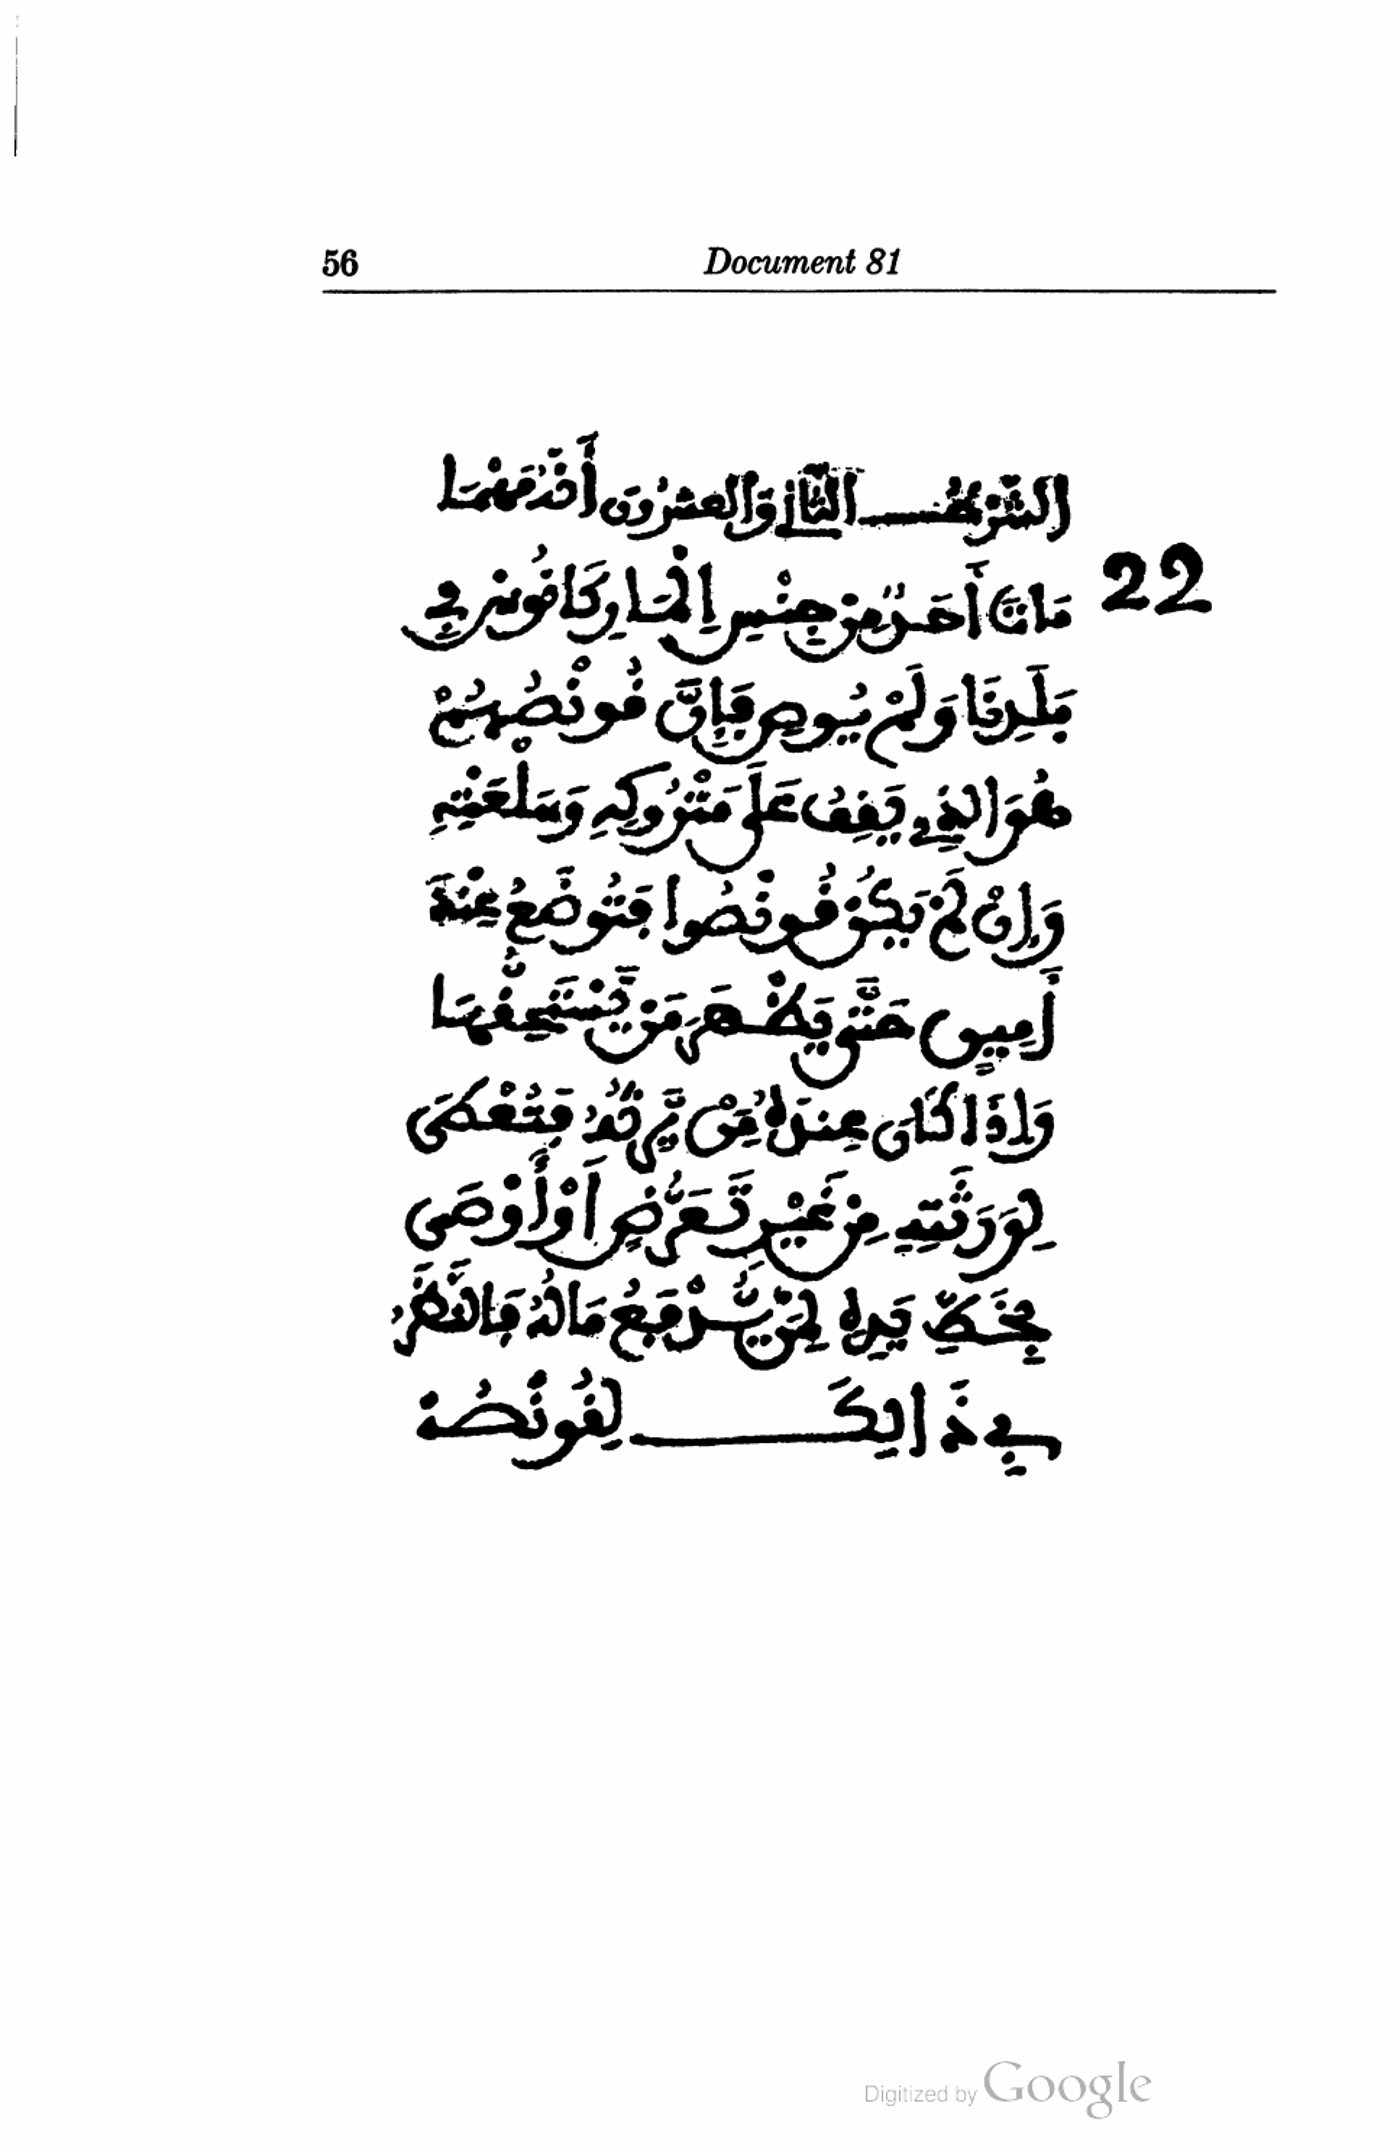 56 Document 81
الشَّرْطُ الثَّانِي وَالْعِشْرُونَ أَنَّهُ مَهْمَا
22
مَاتَ أَحَدٌ مِنْ جِنْسِ اِلْمَارِكَانُوسْ فِي
بَلَدِنَا وَلَمْ يُوصِ فَإِنَّ قُونْصُهُمْ
هُوَ الَّذِي يَقِفُ عَلَى مَتْرُوكِهِ وَسَلْعَتِهِ
وَإِنْ لَمْ يَكُنْ قُونْصُوا فَتُوضَعُ عِنْدَ
أَمِينٍ حَتَّى يَظْهَرَ مَنْ يَّسْتَحِقُّهَا
وَإِذَا كَانَ عِنْدَهُ مَنْ يَّرِثُهُ فَتُعْطَى
لِوَرَثَتِهِ مِنْ غَيْرِ تَعَرُّضٍ أَوْ أَوْصَى
بِخَطِّ يَدِهِ لِمَنْ يُّدْفَعُ مَالُهُ فَالنَّظَرُ
فِي ذَالِكَ لِقُونْصُهْ
Digitized by Google